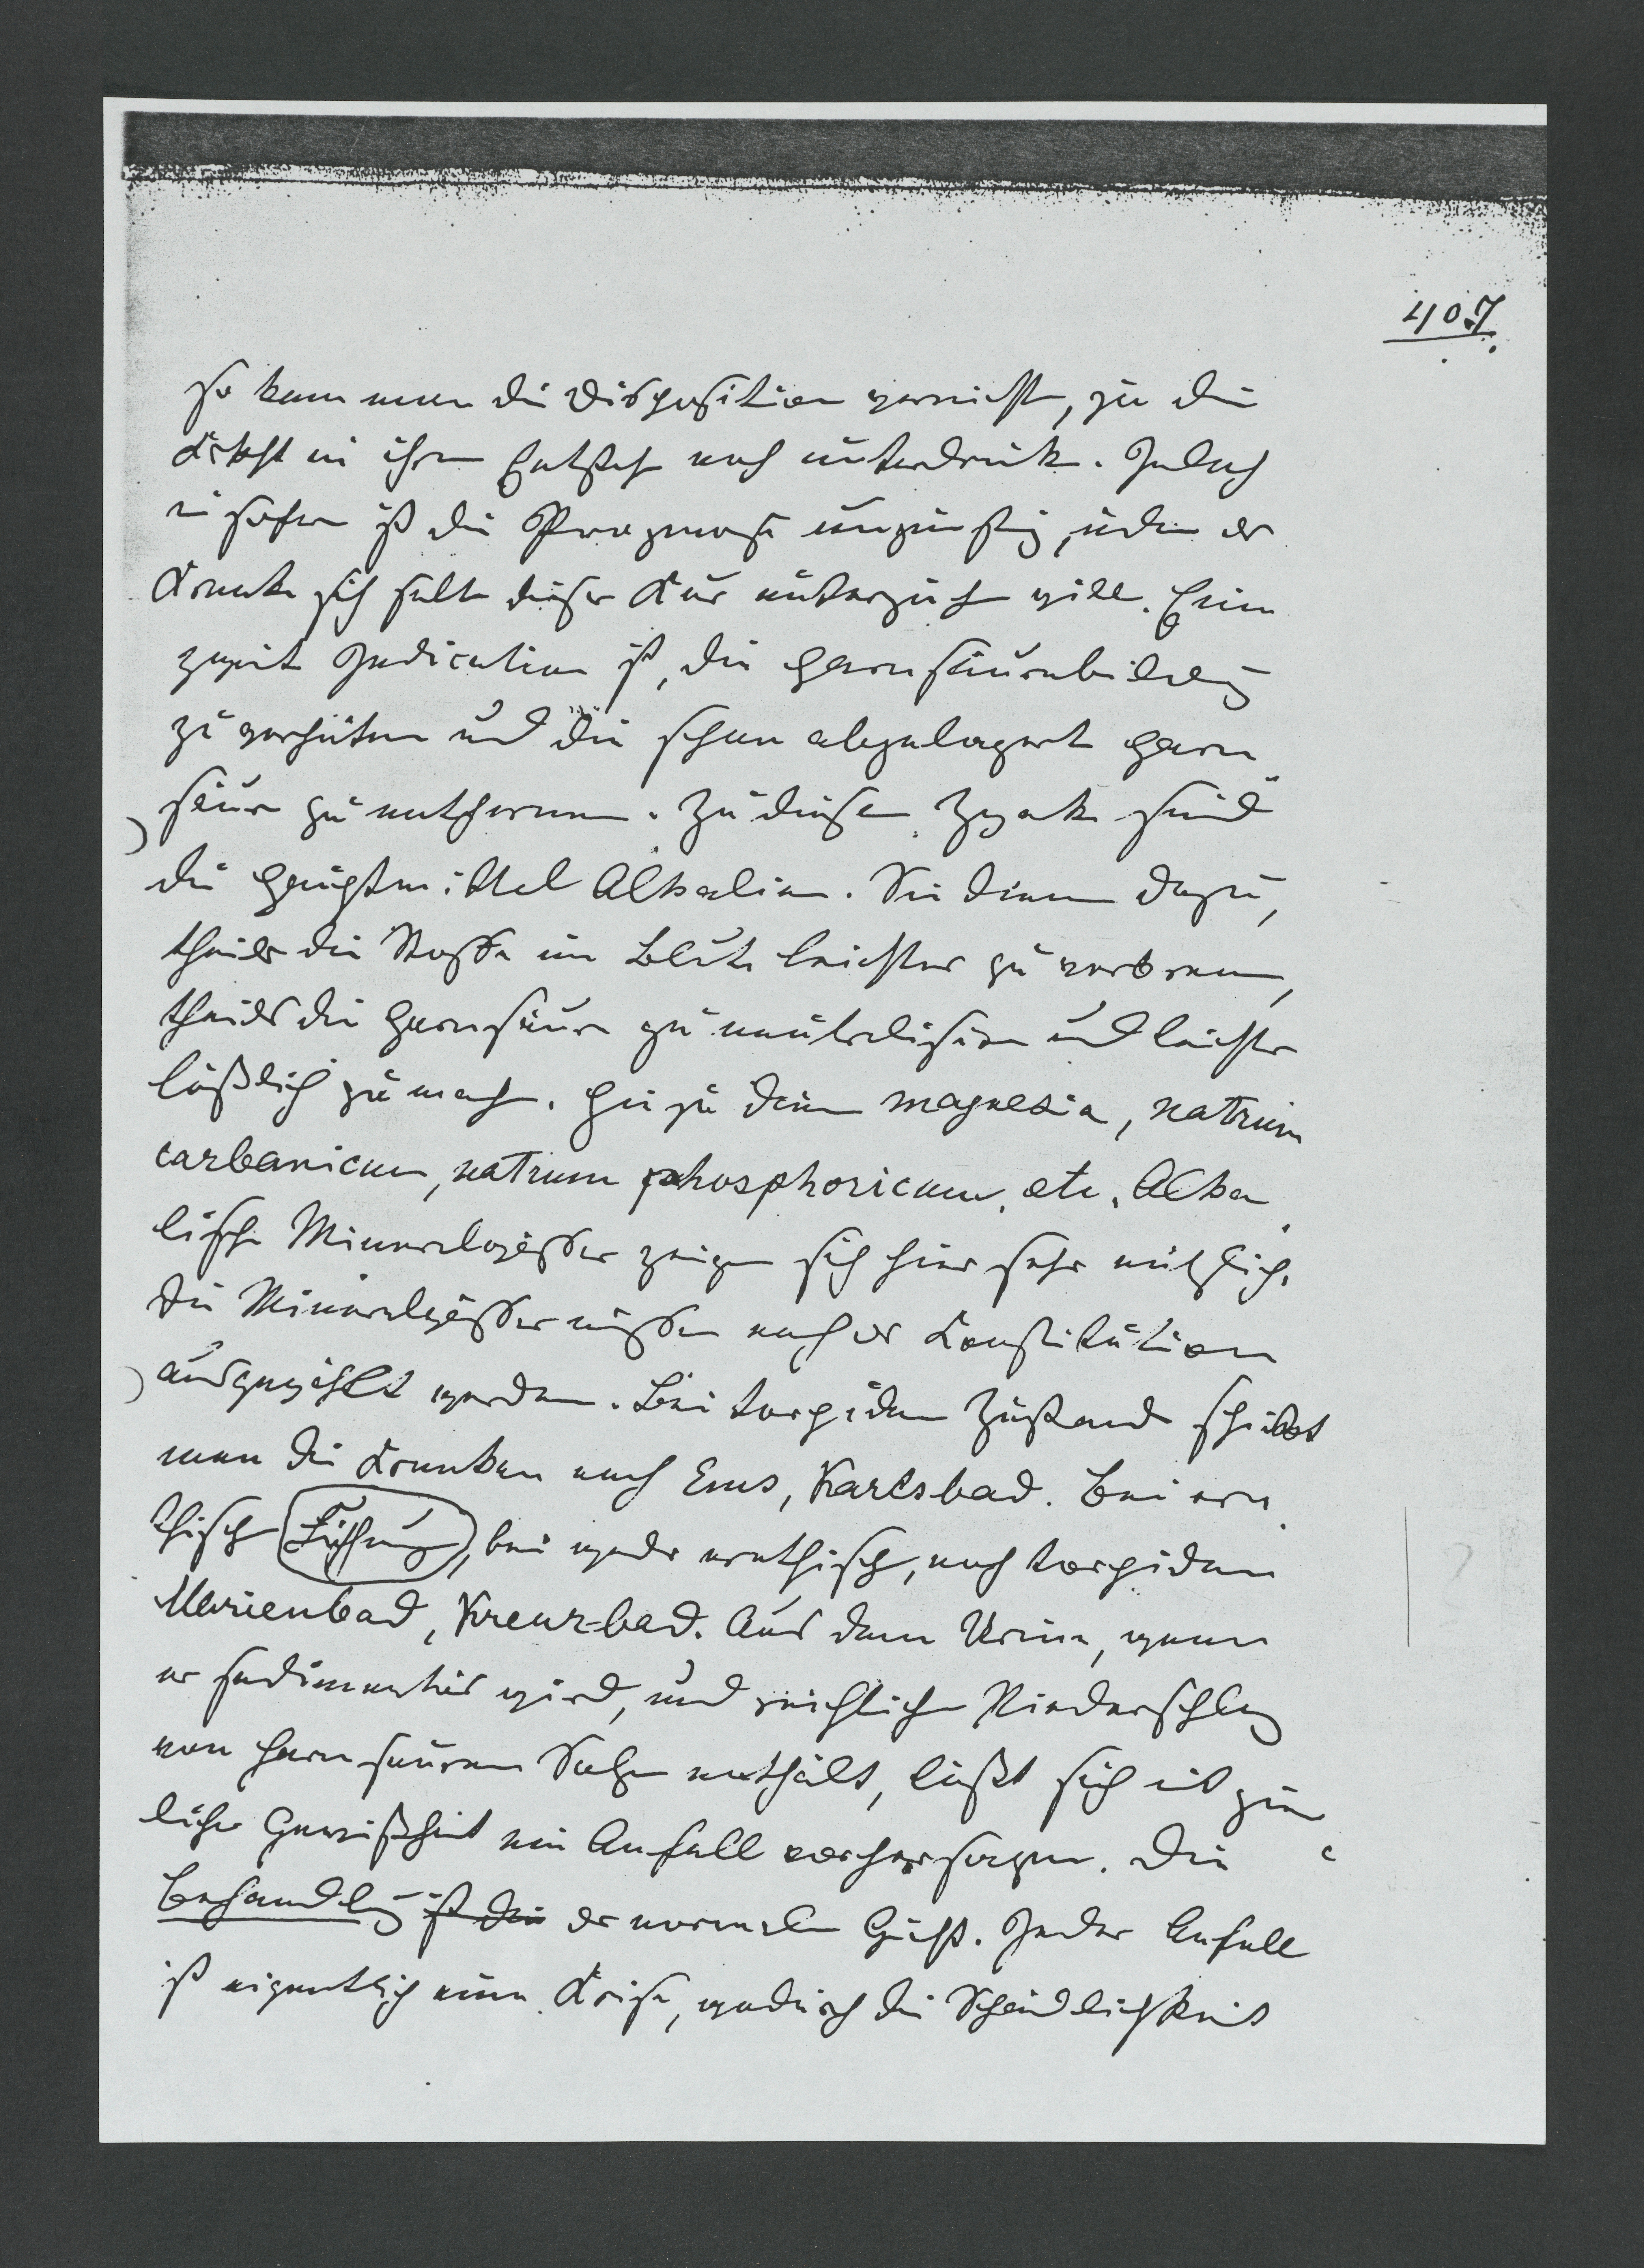 407.
so kann man die Disposition vernicht, ja die
Krkht in ihrem Entsteh noch unterdrück. Jedoch
in sofern ist die Prognose ungünstig, indem der
Kranke sich selten dieser Kur unterzieh will. Eine
zweite Indication ist, die Harnsäurebildung
zu verhüten und die schon abgelagerte Harn
säure zu entfernen. Zu diesem Zwecke sind
die Hauptmittel Alkalien. Sie dienen dazu,
theils die Stoffe im Blute leichter zu verbrennen,
theils die Harnsäure zu neutralisiren und leichter
lößlich zu mach. Hiezu dienen magnesia, natrum
carbonicum, natrum phosphoricum, etc. Alka
lische Mineralwässer zeigen sich hier sehr nützlich.
Die Mineralwässer müssen nach der Constitution
ausgewählt werden. Bei torpiden Zustand schickt
man die Kranken nach Ems, Karlsbad. Bei ere
thisch, bei weder erethisch, noch torpiden
Marienbad, Kreuz-bad. Aus dem Urine, wenn
er sedimentös wird, und reichlichen Niederschlag
von harnsauren Salzen enthält, läßt sich mit ziem
licher Gewißheit ein Anfall vorhersagen. Die
Behandlung ist die der normalen Gicht. Jeder Anfall
ist eigentlich eine Krise, wodurch die Schädlichkeit